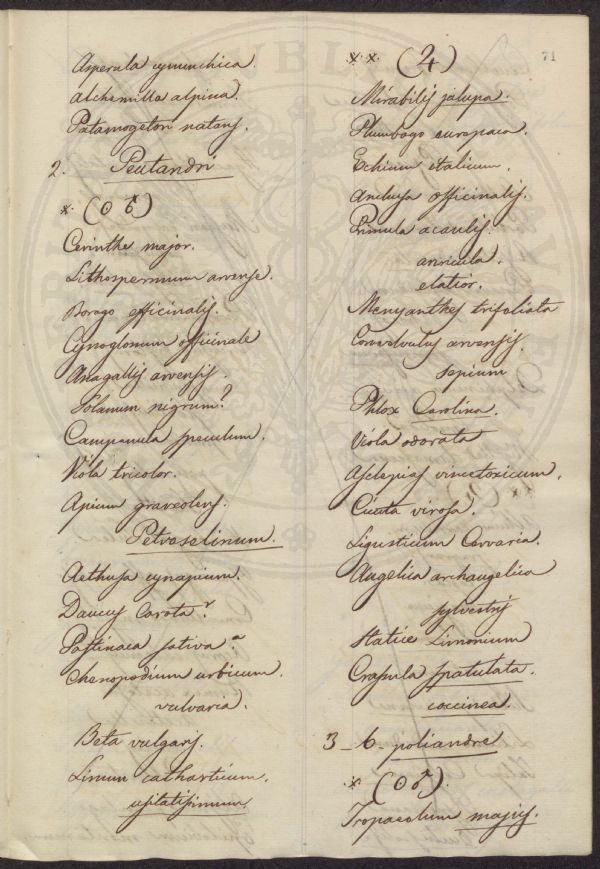 Asperula cynanchica.
Alchemilla alpina.
Patamogeton natans.
2. Pentandri
* (⊙ ♂)
Cerinthe major.
Lithospermum arvense.
Borago officinalis.
Cynoglossum officinale
Anagallis arvensis.
Solanum nigrum?
Campanula speculum.
Viola tricolor.
Apium graveolens.
Petroselinum.
Aethusa cynapium.
Daucus Carota.
Pastinaca sativa.
Chenopodium urbicum.
vulvaria.
Beta vulgaris.
Linum catharticum.
usitatissimum
71
** (♃)
Mirabilis jalapa.
Plumbago europaea.
Echium italicum.
Anchusa officinalis.
Primula acaulis.
auricula.
elatior.
Menyanthes trifoliata
Convolvulus arvensis.
sepium
Phlox Carolina.
Viola odorata
Asclepias vincetoxicum.
Cicuta virosa.
Ligusticum Cervaria.
Angelica archangelica
sylvestris
Statice Limonium
Crassula spatulata.
coccinea.
3 - 6 - poliandre
* (⊙ ♂)
Tropaeolum majus.